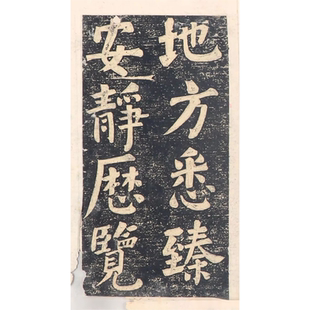 地方悉臻
安靜歷覽